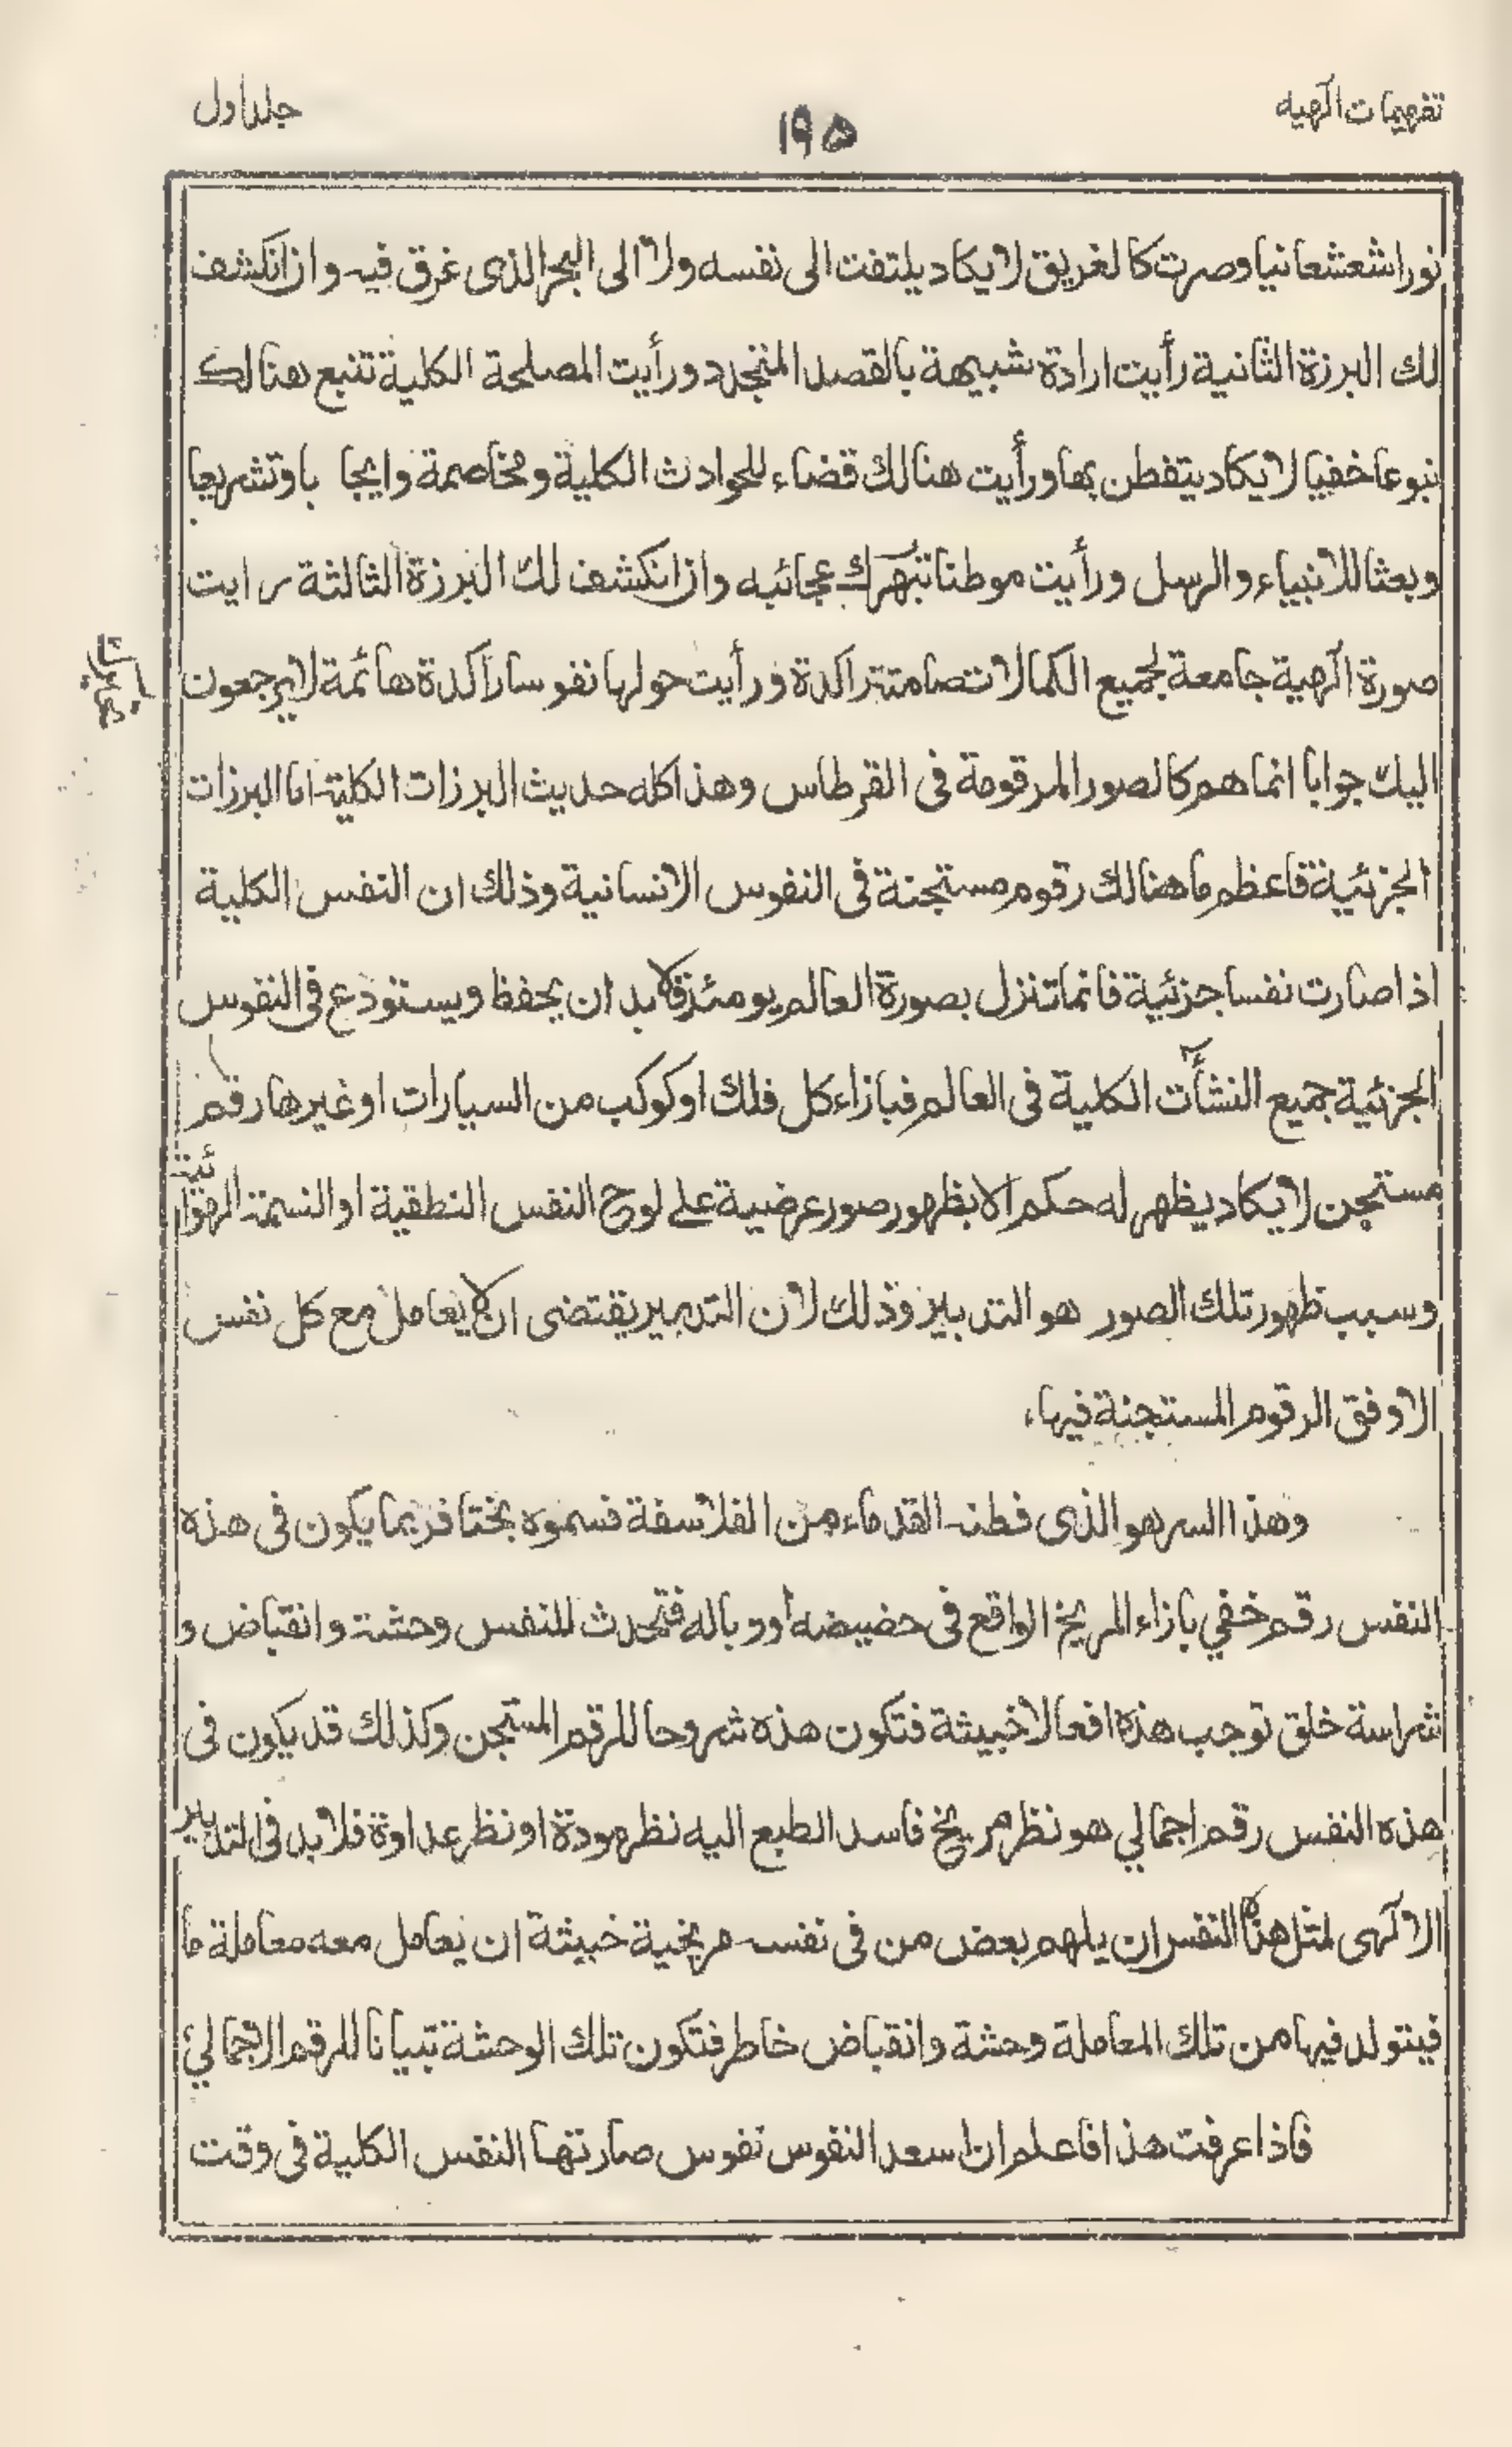 تفهيمات الٓهيه
١٩٥
جلد اول
نورا شعشعانيا وصرت كالغريق لا يكاد يلتفت الى نفسه ولا الى البحر الذى غرق فيه واذا انكشف
لك البرزة الثانية رأيت ارادة شبيهة بالقصد المتجدد ورأيت المصلحة الكلية تنبع هنالك
نبوعا خفيا لا يكاد يتفطن بها ورأيت هنالك قضاء للحوادث الكلية ومخاصمة وايجا با وتشريعا
وبعثا للانبياء والرسل ورأيت موطنا تبهرك عجائبه واذا انكشف لك البرزة الثالثة رايت
صورة الٓهية جامعة لجميع الكمالات صامتة راكدة ورأيت حولها نفوسا راكدة هائمة لا يرجعون
اليك جوابا انما هم كالصور المرقومة فى القرطاس وهذا كله حديث البرزات الكلية اما البرزات
الجزئية فاعظم ما هنالك رقوم مستجنة فى النفوس الانسانية وذلك ان النفس الكلية
اذا صارت نفسا جزئية فانما تنزل بصورة العالم يومئذ فلا بد ان يحفظ ويستودع فى النفوس
الجزئية جميع النشأت الكلية فى العالم فبازاء كل فلك او كوكب من السيارات او غيرها رقم
مستجن لا يكاد يظهر له حكم الا بظهور صور عرضية على لوح النفس النطقية او النسمة الهوائية
وسبب ظهور تلك الصور هو التدبير وذلك لان التدبير يقتضى ان لا يعامل مع كل نفس
الا وفق الرقوم المستجنة فيها،
وهذا السر هو الذى فطنه القدماء من الفلاسفة فسموه بختا فربما يكون فى هذه
النفس رقم خفي بازاء المريخ الواقع فى حضيضه أو وباله فتحدث للنفس وحشة وانقباض و
شراسة خلق توجب هذه افعالا خبيثة فتكون هذه شروحا للرقم المستجن وكذلك قد يكون فى
هذه النفس رقم اجمالي هو نظر مريخ فاسد الطبع اليه نظر مودة او نظر عداوة فلا بد فى التدبير
الالٓهى لمثل هذه النفس ان يلهم بعض من فى نفسه مريخية خبيثة ان يعامل معه معاملة ما
فيتولد فيها من تلك المعاملة وحشة وانقباض خاطر فتكون تلك الوحشة تبيانا للرقم الاجمالي
فاذا عرفت هذا فاعلم ان اسعد النفوس نفوس صارتها النفس الكلية فى وقت